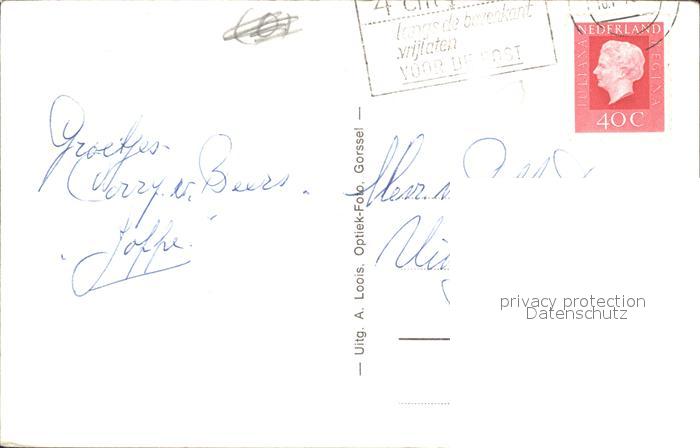 4 cm
langs de bovenkant
vrijlaten
VOOR DE POST
NEDERLAND
JULIANA REGINA
40 C
Groetjes
Corry v. Beers.
"Joppe."
— Uitg. A. Loois, Optiek-Foto, Gorssel —
privacy protection
Datenschutz